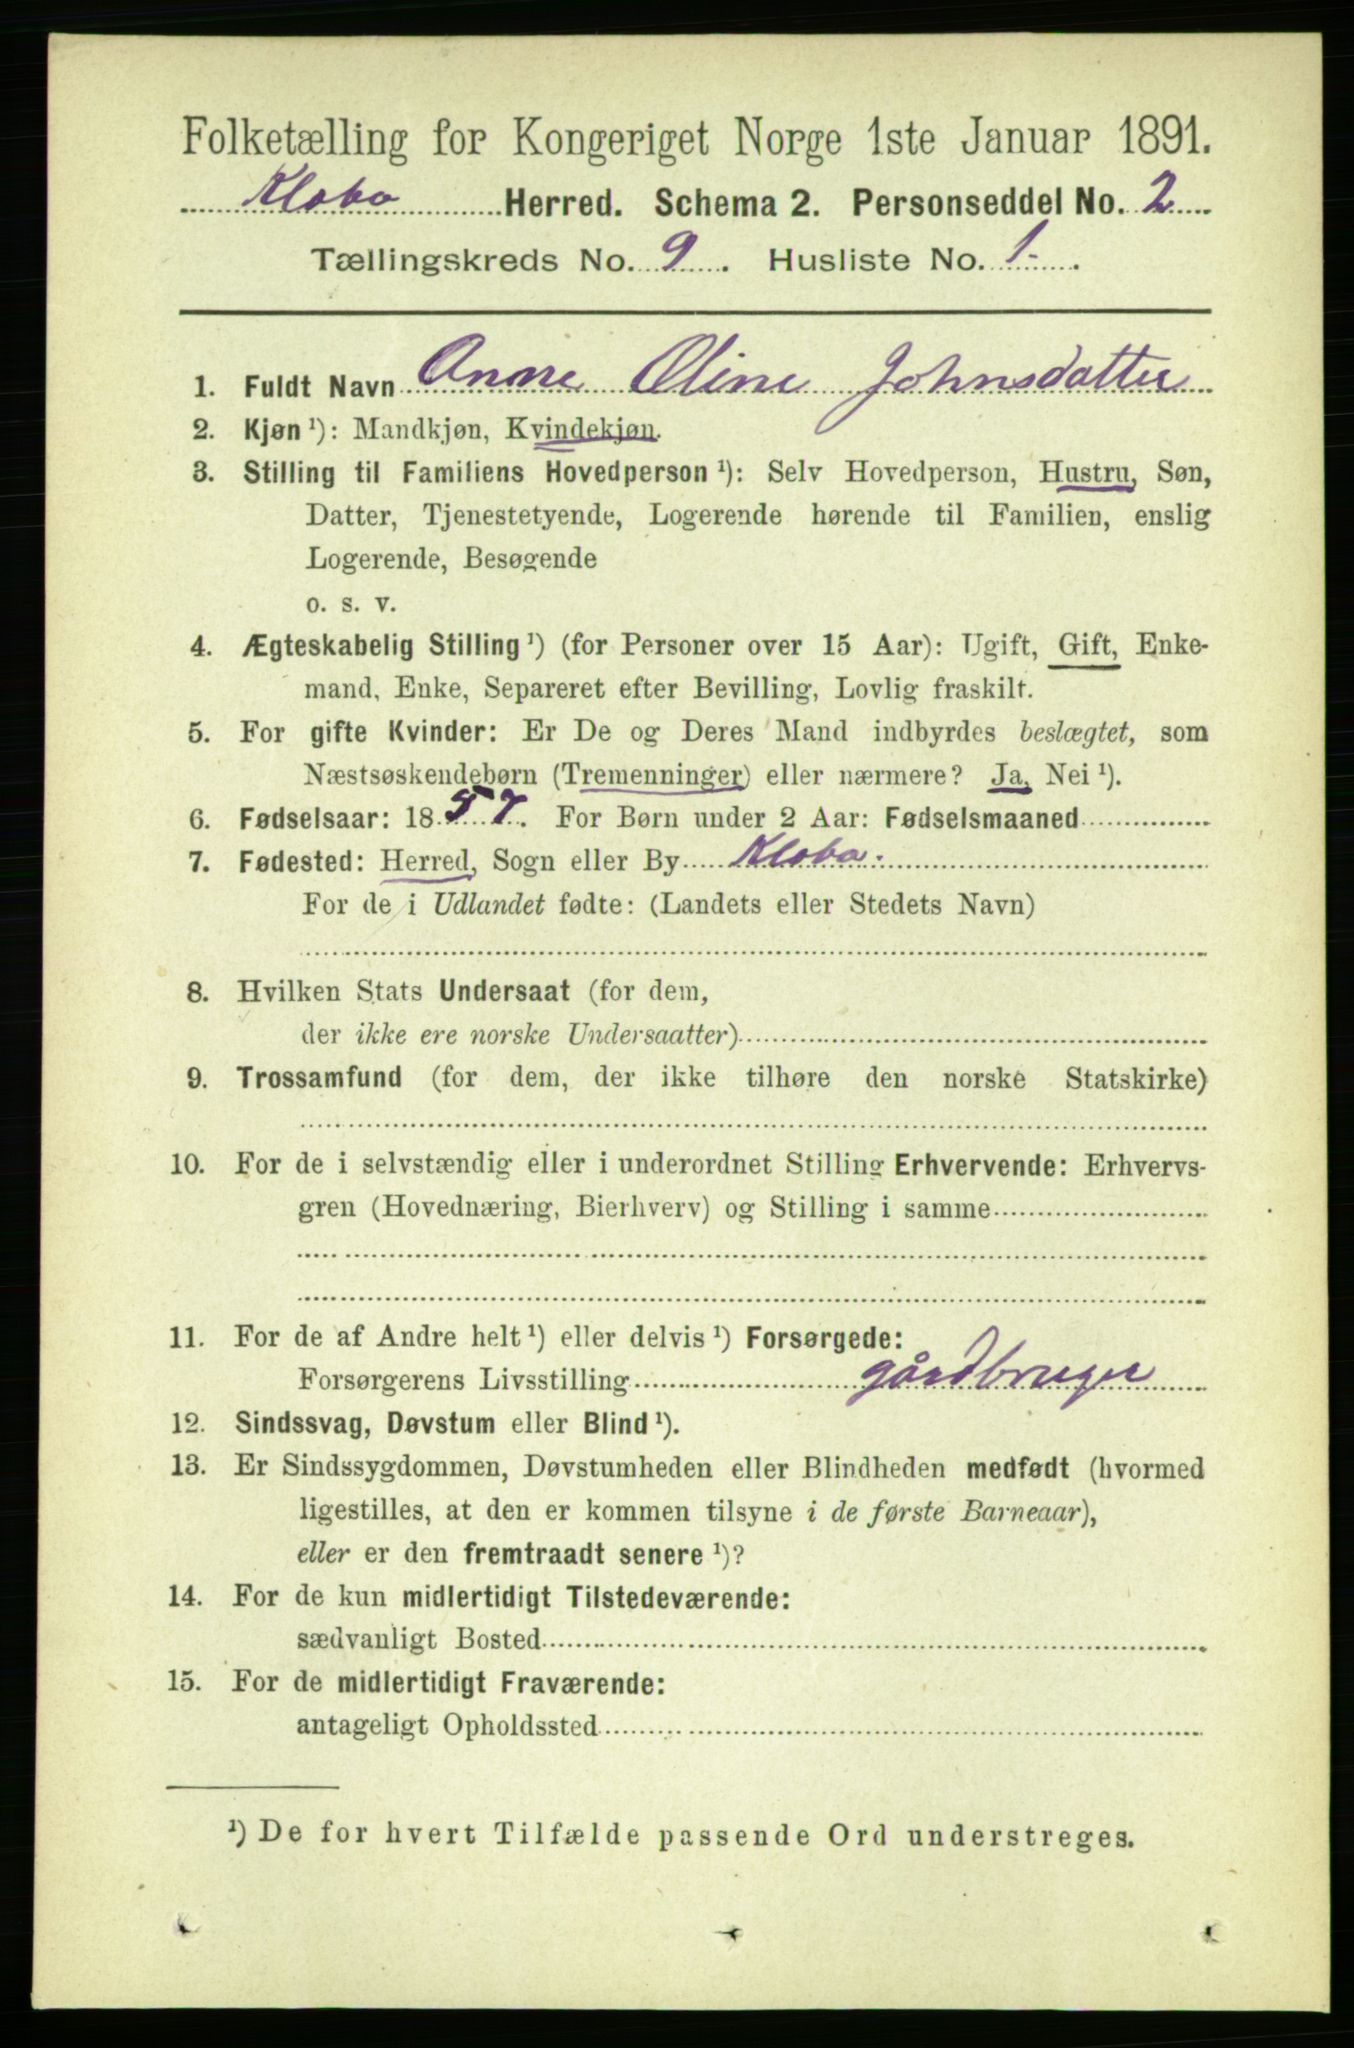 Folketælling for Kongeriget Norge 1ste Januar 1891.
Klæbo Herred. Schema 2. Personseddel No. 2
Tællingskreds No. 9. Husliste No. 1.
1. Fuldt Navn Anne Oline Johnsdatter
2. Kjøn ¹): Mandkjøn, Kvindekjøn.
3. Stilling til Familiens Hovedperson ¹): Selv Hovedperson, Hustru, Søn,
Datter, Tjenestetyende, Logerende hørende til Familien, enslig
Logerende, Besøgende
o. s. v.
4. Ægteskabelig Stilling ¹) (for Personer over 15 Aar): Ugift, Gift, Enke-
mand, Enke, Separeret efter Bevilling, Lovlig fraskilt.
5. For gifte Kvinder: Er De og Deres Mand indbyrdes beslægtet, som
Næstsøskendebørn (Tremenninger) eller nærmere? Ja, Nei ¹).
6. Fødselsaar: 1857. For Børn under 2 Aar: Fødselsmaaned
7. Fødested: Herred, Sogn eller By Klæbo.
For de i Udlandet fødte: (Landets eller Stedets Navn)
8. Hvilken Stats Undersaat (for dem,
der ikke ere norske Undersaatter)
9. Trossamfund (for dem, der ikke tilhøre den norske Statskirke)
10. For de i selvstændig eller i underordnet Stilling Erhvervende: Erhvervs-
gren (Hovednæring, Bierhverv) og Stilling i samme
11. For de af Andre helt ¹) eller delvis ¹) Forsørgede:
Forsørgerens Livsstilling gårdbruger
12. Sindssvag, Døvstum eller Blind ¹).
13. Er Sindssygdommen, Døvstumheden eller Blindheden medfødt (hvormed
ligestilles, at den er kommen tilsyne i de første Barneaar),
eller er den fremtraadt senere ¹)?
14. For de kun midlertidigt Tilstedeværende:
sædvanligt Bosted
15. For de midlertidigt Fraværende:
antageligt Opholdssted
¹) De for hvert Tilfælde passende Ord understreges.